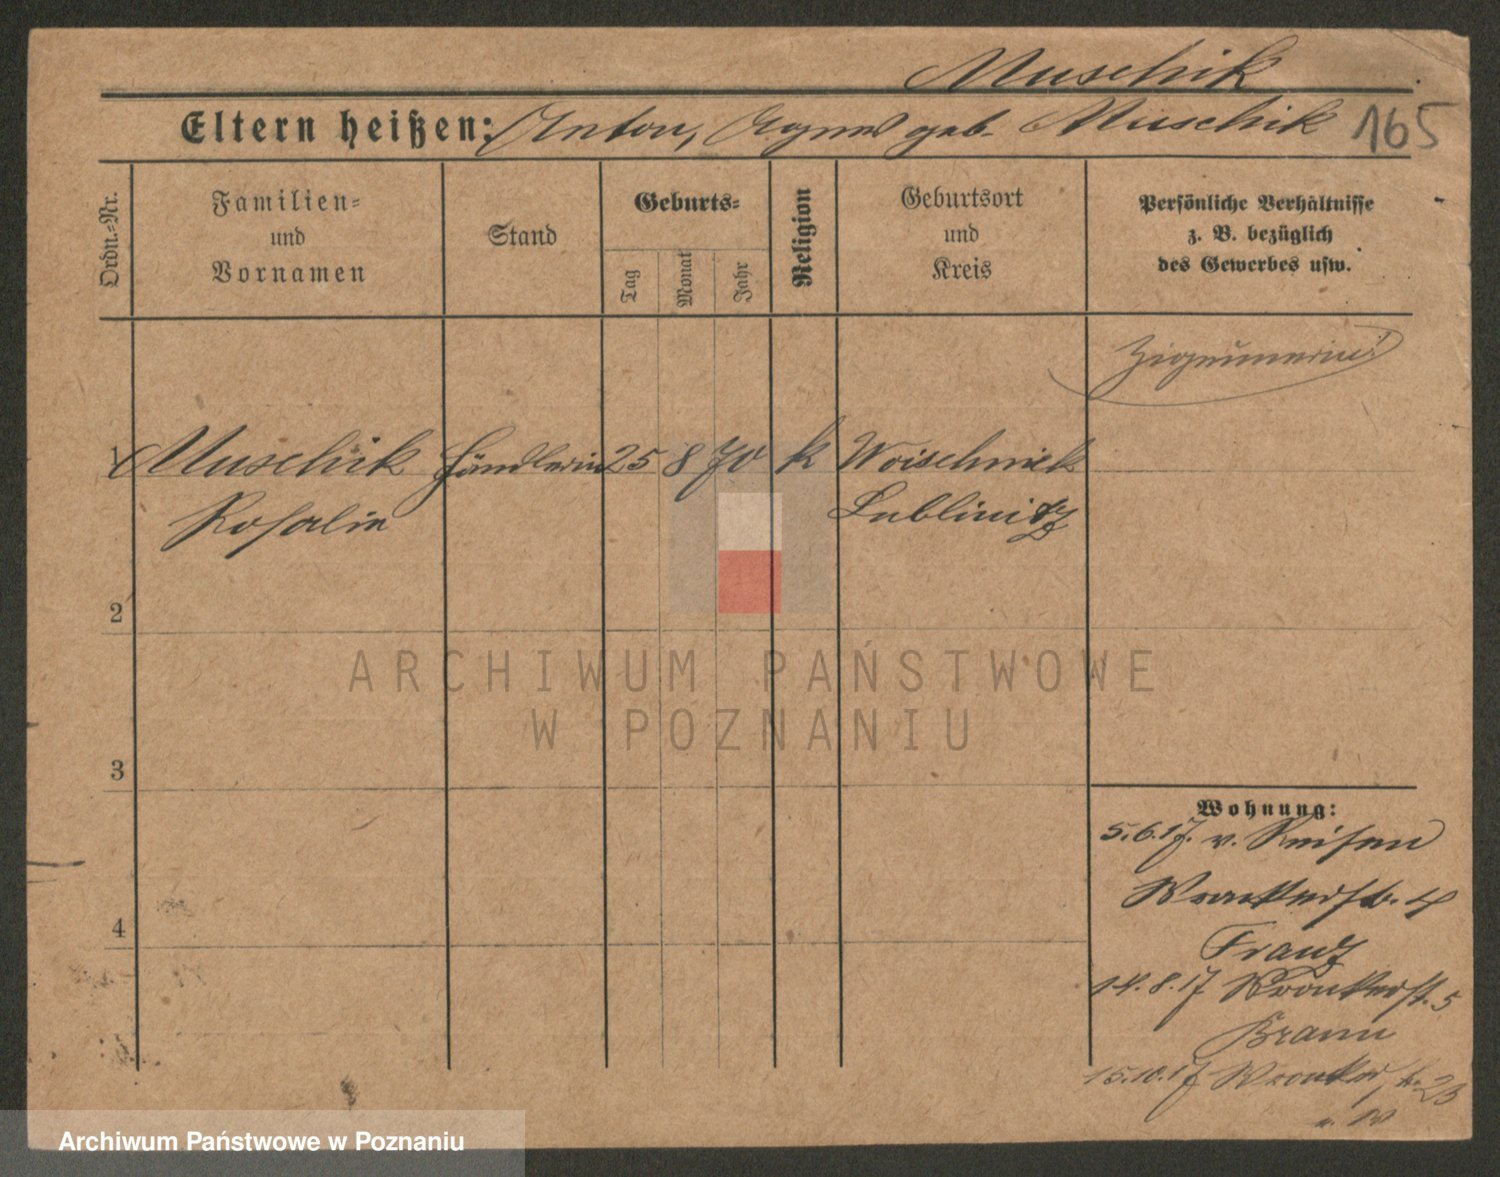 Muschik
Eltern heißen: Anton, Agnes geb. Muschik 165
Ordn.-Nr.
Familien-
und
Vornamen
Stand
Geburts-
Tag
Monat
Jahr
Religion
Geburtsort
und
Kreis
Persönliche Verhältnisse
z. B. bezüglich
des Gewerbes usw.
Zigeunerin!
1 Muschik Händlerin 25 8 70 k Woischnik
Rosalie Lublinitz
2
3
4
Wohnung:
5.6.17. v. Reisen
Wronkerstr. 4
Franz
14.8.17 Wronkerst. 5
Brann
15.10.17 Wronkerstr. 23
ARCHIWUM PAŃSTWOWE
W POZNANIU
Archiwum Państwowe w Poznaniu